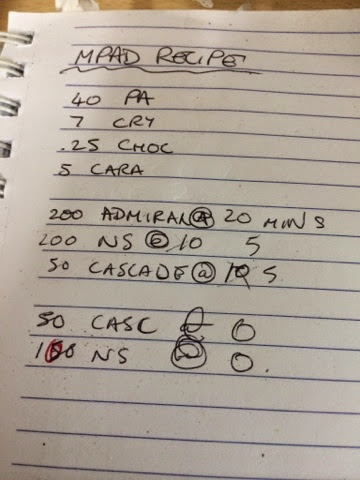 MPAD RECIPE
40 PA
7 CRY
.25 CHOC
5 CARA
200 ADMIRAL @ 20 MINS
200 NS @ 10 5
50 CASCADE @ 5
50 CASC @ 0
100 NS @ 0.